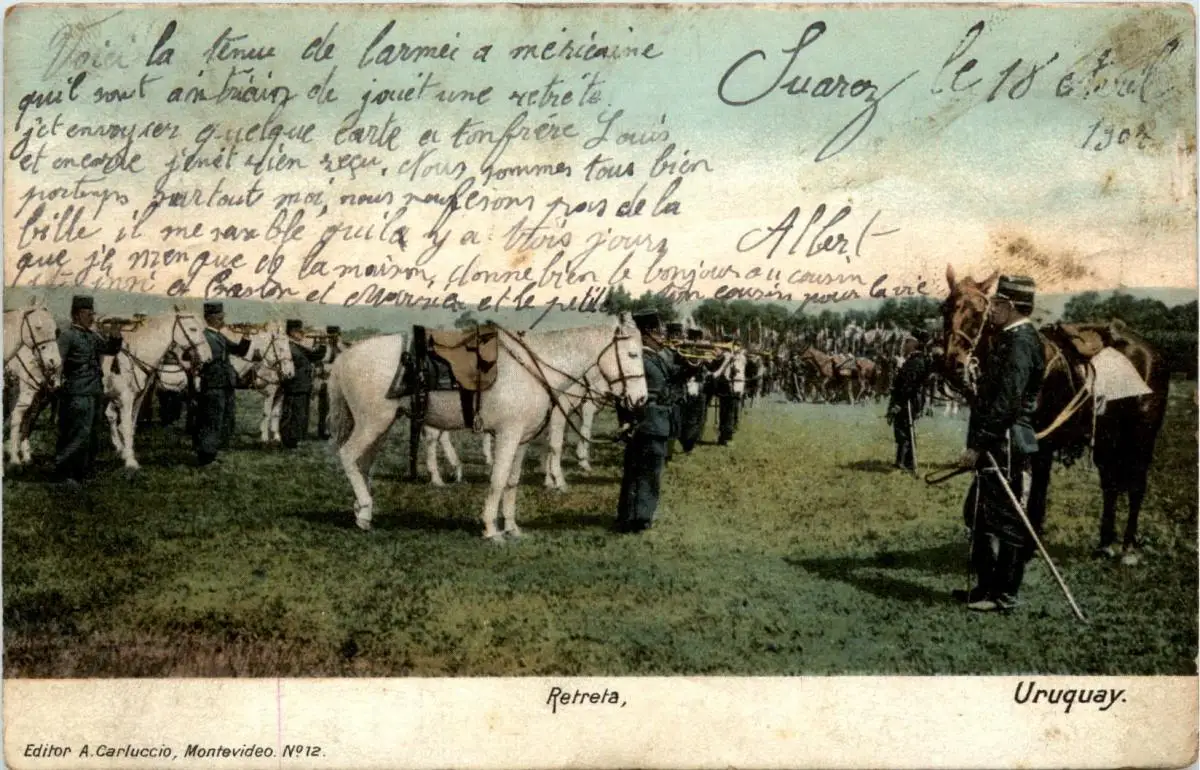 Suarez le 18 Avril
1902
Voici la tenue de larmei a méricaine
qu'il sont an de jouét une retréte
j'et envoyser quelque carte a ton frére Louis
et encorre j'enét rien reçu. Nous sommes tous bien
portemps surtout moi, nous pas de la
bille il me semble quila y a trois jours
que je m'en que de la maison, donne bien le bonjour au cousin
et Gaston et et le petite ton cousin pour la vie
Albert
Retreta,
Uruguay.
Editor A. Carluccio, Montevideo. Nº 12.